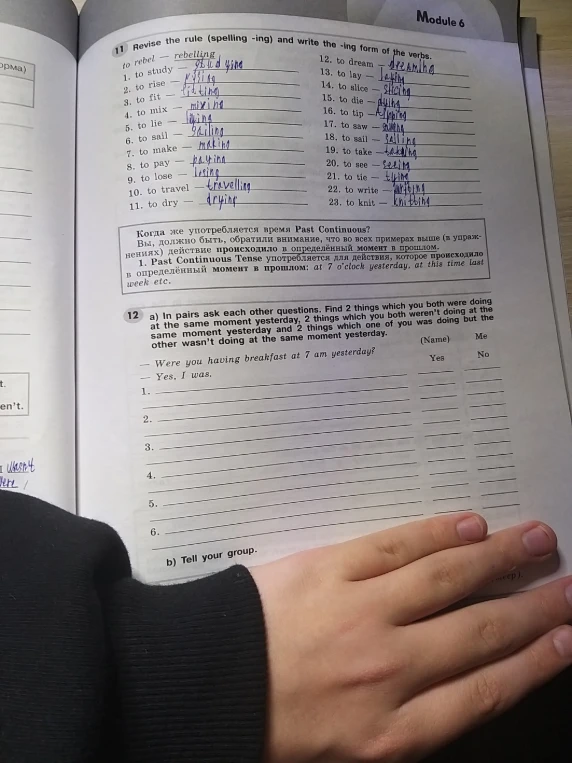 Module 6
орма)
11 Revise the rule (spelling -ing) and write the -ing form of the verbs.
to rebel — rebelling
1. to study — studying
2. to rise — rising
3. to fit — fitting
4. to mix — mixing
5. to lie — lying
6. to sail — sailing
7. to make — making
8. to pay — paying
9. to lose — losing
10. to travel — travelling
11. to dry — drying
12. to dream — dreaming
13. to lay — laying
14. to slice — slicing
15. to die — dying
16. to tip —
17. to saw —
18. to sail — sailing
19. to take — taking
20. to see — seeing
21. to tie — tying
22. to write — writing
23. to knit — knitting
Когда же употребляется время Past Continuous?
Вы, должно быть, обратили внимание, что во всех примерах выше (в упраж-
нениях) действие происходило в определённый момент в прошлом.
1. Past Continuous Tense употребляется для действия, которое происходило
в определённый момент в прошлом: at 7 o'clock yesterday, at this time last
week etc.
12 a) In pairs ask each other questions. Find 2 things which you both were doing
at the same moment yesterday, 2 things which you both weren't doing at the
same moment yesterday and 2 things which one of you was doing but the
other wasn't doing at the same moment yesterday.
(Name) Me
— Were you having breakfast at 7 am yesterday? Yes No
— Yes, I was.
1.
2.
3.
4.
5.
6.
b) Tell your group.
t.
en't.
wasn't